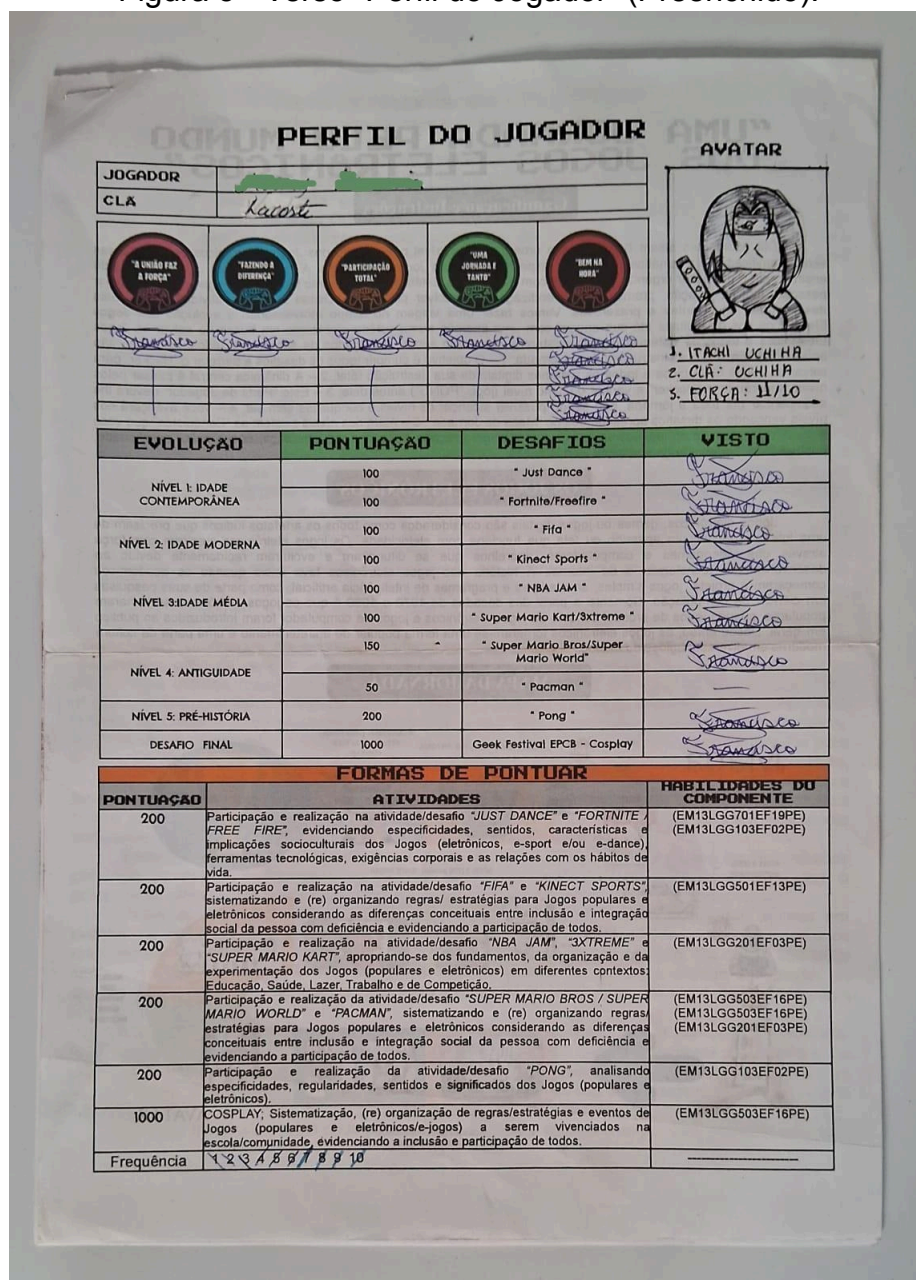 Figura 8 - Verso "Perfil do Jogador" (Preenchido).
PERFIL DO JOGADOR
AVATAR
JOGADOR
CLÃ Lacoste
"A UNIÃO FAZ A FORÇA"
"FAZENDO A DIFERENÇA"
"PARTICIPAÇÃO TOTAL"
"UMA JORNADA E TANTO"
"BEM NA HORA"
Francisco Francisco Francisco Francisco Francisco
Francisco
Francisco
Francisco
Francisco
1. ITACHI UCHIHA
2. CLÃ: UCHIHA
3. FORÇA: 11/10
EVOLUÇÃO PONTUAÇÃO DESAFIOS VISTO
NÍVEL 1: IDADE CONTEMPORÂNEA
100 " Just Dance " Francisco
100 " Fortnite/Freefire " Francisco
NÍVEL 2: IDADE MODERNA
100 " Fifa " Francisco
100 " Kinect Sports " Francisco
NÍVEL 3:IDADE MÉDIA
100 " NBA JAM " Francisco
100 " Super Mario Kart/3xtreme " Francisco
NÍVEL 4: ANTIGUIDADE
150 " Super Mario Bros/Super Mario World" Francisco
50 " Pacman " —
NÍVEL 5: PRÉ-HISTÓRIA 200 " Pong " Francisco
DESAFIO FINAL 1000 Geek Festival EPCB - Cosplay Francisco
FORMAS DE PONTUAR
PONTUAÇÃO ATIVIDADES HABILIDADES DO COMPONENTE
200 Participação e realização na atividade/desafio "JUST DANCE" e "FORTNITE / (EM13LGG701EF19PE)
FREE FIRE", evidenciando especificidades, sentidos, características e (EM13LGG103EF02PE)
implicações socioculturais dos Jogos (eletrônicos, e-sport e/ou e-dance),
ferramentas tecnológicas, exigências corporais e as relações com os hábitos de
vida.
200 Participação e realização na atividade/desafio "FIFA" e "KINECT SPORTS", (EM13LGG501EF13PE)
sistematizando e (re) organizando regras/ estratégias para Jogos populares e
eletrônicos considerando as diferenças conceituais entre inclusão e integração
social da pessoa com deficiência e evidenciando a participação de todos.
200 Participação e realização na atividade/desafio "NBA JAM", "3XTREME" e (EM13LGG201EF03PE)
"SUPER MARIO KART", apropriando-se dos fundamentos, da organização e da
experimentação dos Jogos (populares e eletrônicos) em diferentes contextos:
Educação, Saúde, Lazer, Trabalho e de Competição.
200 Participação e realização da atividade/desafio "SUPER MARIO BROS / SUPER (EM13LGG503EF16PE)
MARIO WORLD" e "PACMAN", sistematizando e (re) organizando regras/ (EM13LGG503EF16PE)
estratégias para Jogos populares e eletrônicos considerando as diferenças (EM13LGG201EF03PE)
conceituais entre inclusão e integração social da pessoa com deficiência e
evidenciando a participação de todos.
200 Participação e realização da atividade/desafio "PONG", analisando (EM13LGG103EF02PE)
especificidades, regularidades, sentidos e significados dos Jogos (populares e
eletrônicos).
1000 COSPLAY; Sistematização, (re) organização de regras/estratégias e eventos de (EM13LGG503EF16PE)
Jogos (populares e eletrônicos/e-jogos) a serem vivenciados na
escola/comunidade, evidenciando a inclusão e participação de todos.
Frequência 1 2 3 4 5 6 7 8 9 10